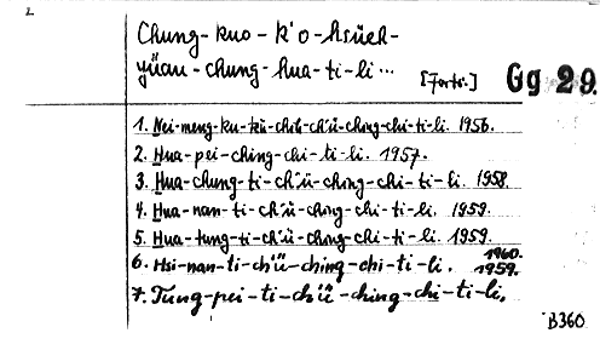 Chung-kuo-k'o-hsüeh-
yüan-chung-hua-ti-li... [Forts.] Gg 29.
1. Nei-meng-ku-tzŭ-chih-ch'ü-ching-chi-ti-li. 1956.
2. Hua-pei-ching-chi-ti-li. 1957.
3. Hua-chung-ti-ch'ü-ching-chi-ti-li. 1958.
4. Hua-nan-ti-ch'ü-ching-chi-ti-li. 1959.
5. Hua-tung-ti-ch'ü-ching-chi-ti-li. 1959.
1960.
6. Hsi-nan-ti-ch'ü-ching-chi-ti-li. 1959.
7. Tung-pei-ti-ch'ü-ching-chi-ti-li.
B360